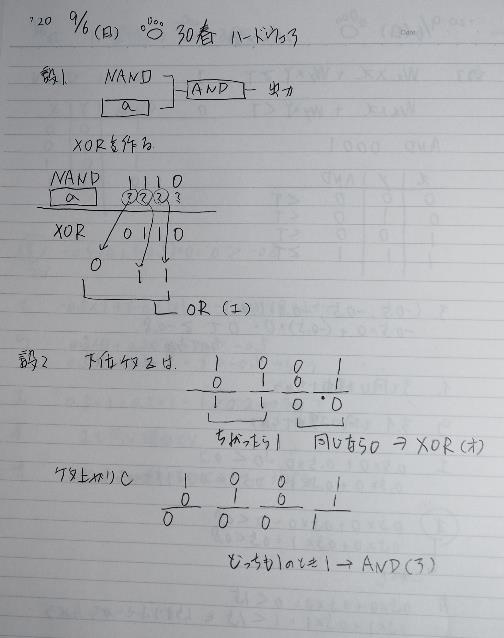 '20 9/6(日) 30春 ハードウェア
設1 NAND
a
AND 出力
XORを作る
NAND 1 1 1 0
a ? ? ? ?
XOR 0 1 1 0
0 1 1
OR (エ)
設2 下位ケタZは 1 0 0 1
0 1 0 1
1 1 0 0
ちがったら1 同じなら0 → XOR(オ)
ケタ上がりC 1 0 0 1
0 1 0 1
0 0 0 1
どっちも1のとき1 → AND(ウ)